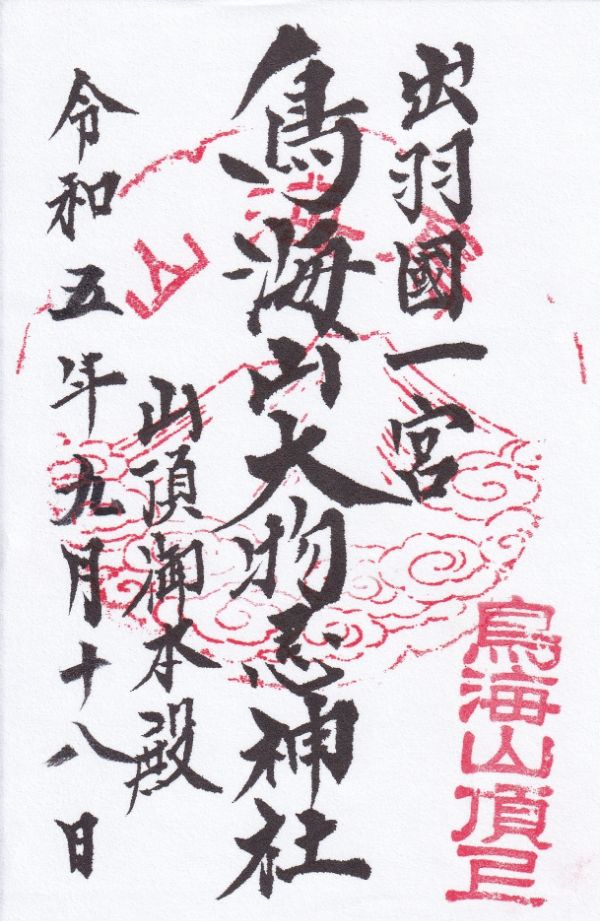 出羽國一宮
鳥海山大物忌神社
山頂御本殿
令和五年九月十八日
鳥海山
鳥海山頂上